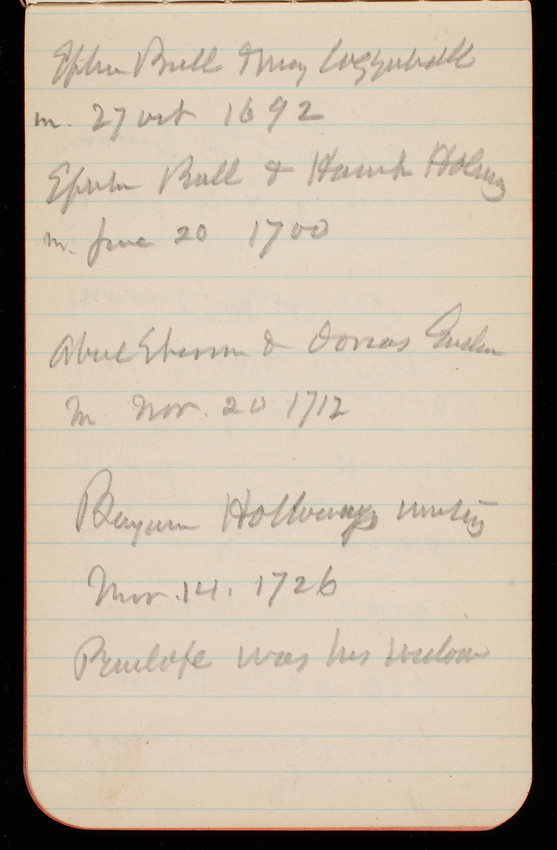 Ephm Bull & Mary Coggeshall
m. 27 oct 1692
Ephm Bull & Hannah Holway
m. June 20 1700
Abiel Sherman & Dorcas
m Nov. 20 1712
Benjamin Holloways
Nov. 14. 1726
Penelope was his widow